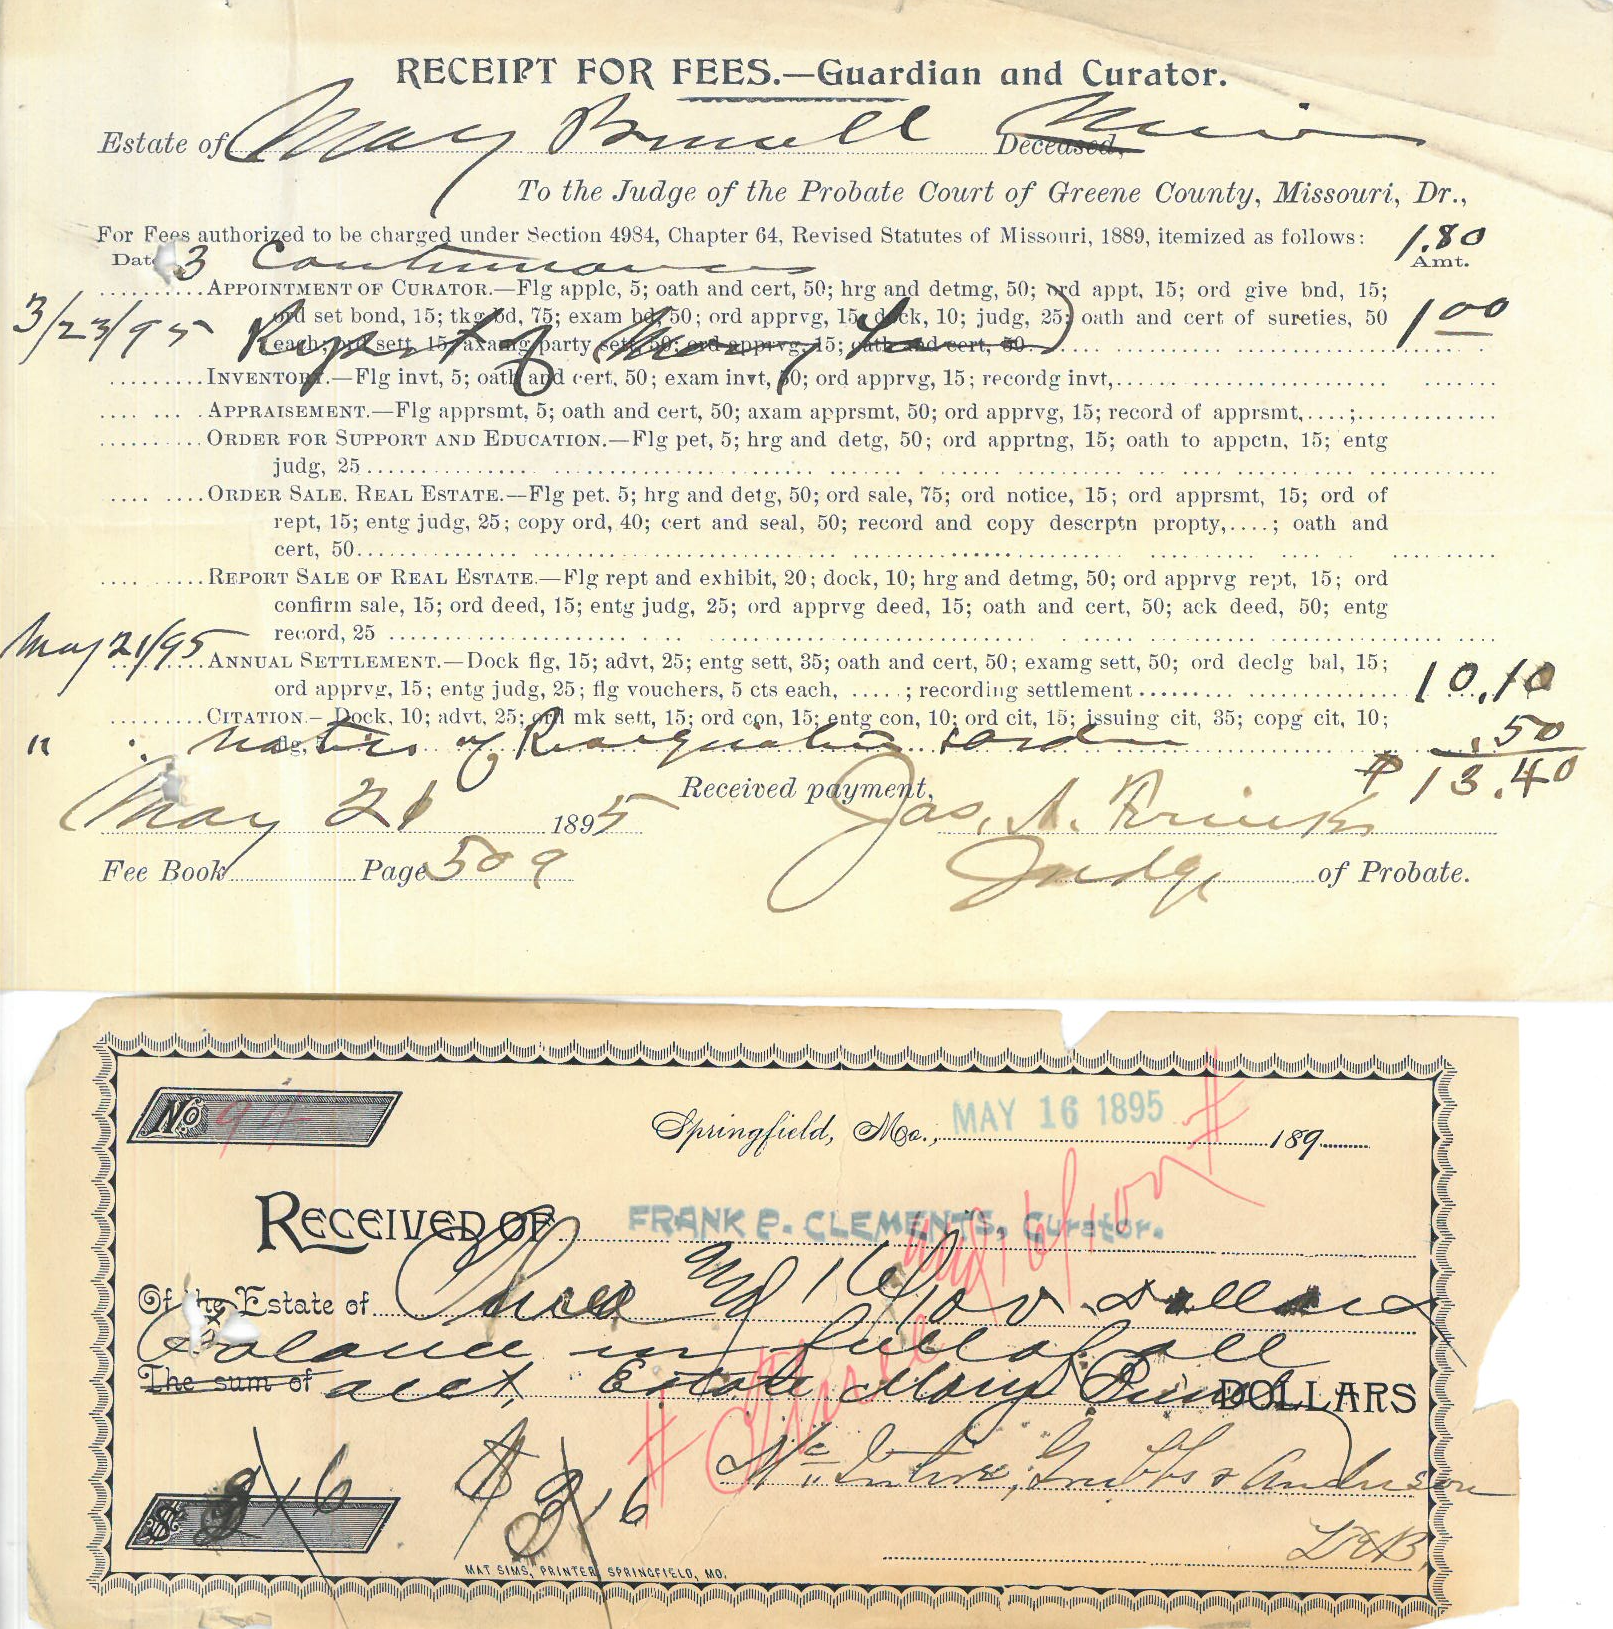 RECEIPT FOR FEES.—Guardian and Curator.
Estate of May Burrell Deceased, Minor
To the Judge of the Probate Court of Greene County, Missouri, Dr.,
For Fees authorized to be charged under Section 4984, Chapter 64, Revised Statutes of Missouri, 1889, itemized as follows: 1.80
Date 3 Continuances Amt.
APPOINTMENT OF CURATOR.—Flg applc, 5; oath and cert, 50; hrg and detmg, 50; ord appt, 15; ord give bnd, 15;
ord set bond, 15; tkg bd, 75; exam bd, 50; ord apprvg, 15; dock, 10; judg, 25; oath and cert of sureties, 50
3/23/95 Report of Money 1.00
each; ord sett, 15; axamg party sett, 50; ord apprvg, 15; oath and cert, 50
INVENTORY.—Flg invt, 5; oath and cert, 50; exam invt, 50; ord apprvg, 15; recordg invt,
APPRAISEMENT.—Flg apprsmt, 5; oath and cert, 50; axam apprsmt, 50; ord apprvg, 15; record of apprsmt,....;
ORDER FOR SUPPORT AND EDUCATION.—Flg pet, 5; hrg and detg, 50; ord apprtng, 15; oath to appctn, 15; entg
judg, 25
ORDER SALE. REAL ESTATE.—Flg pet. 5; hrg and detg, 50; ord sale, 75; ord notice, 15; ord apprsmt, 15; ord of
rept, 15; entg judg, 25; copy ord, 40; cert and seal, 50; record and copy descrptn propty,....; oath and
cert, 50
REPORT SALE OF REAL ESTATE.—Flg rept and exhibit, 20; dock, 10; hrg and detmg, 50; ord apprvg rept, 15; ord
confirm sale, 15; ord deed, 15; entg judg, 25; ord apprvg deed, 15; oath and cert, 50; ack deed, 50; entg
record, 25
May 21/95 ANNUAL SETTLEMENT.—Dock flg, 15; advt, 25; entg sett, 35; oath and cert, 50; examg sett, 50; ord declg bal, 15;
ord apprvg, 15; entg judg, 25; flg vouchers, 5 cts each, .....; recording settlement 10.10
CITATION.— Dock, 10; advt, 25; ord mk sett, 15; ord con, 15; entg con, 10; ord cit, 15; issuing cit, 35; copg cit, 10;
" notice of Resignation & ord .50
$ 13.40
May 21 1895 Received payment, Jas. A.
Fee Book Page 509 Judge of Probate.
No. 94 Springfield, Mo., MAY 16 1895 189
RECEIVED OF FRANK P. CLEMENTS, Curator.
Of the Estate of Three and 16/100 dollars
balance in full of all
The sum of acct, Estate Mary DOLLARS
Mc Intire, Grubbs & Anderson
$ 3 16 $ 3 16
MAT SIMS, PRINTER, SPRINGFIELD, MO.